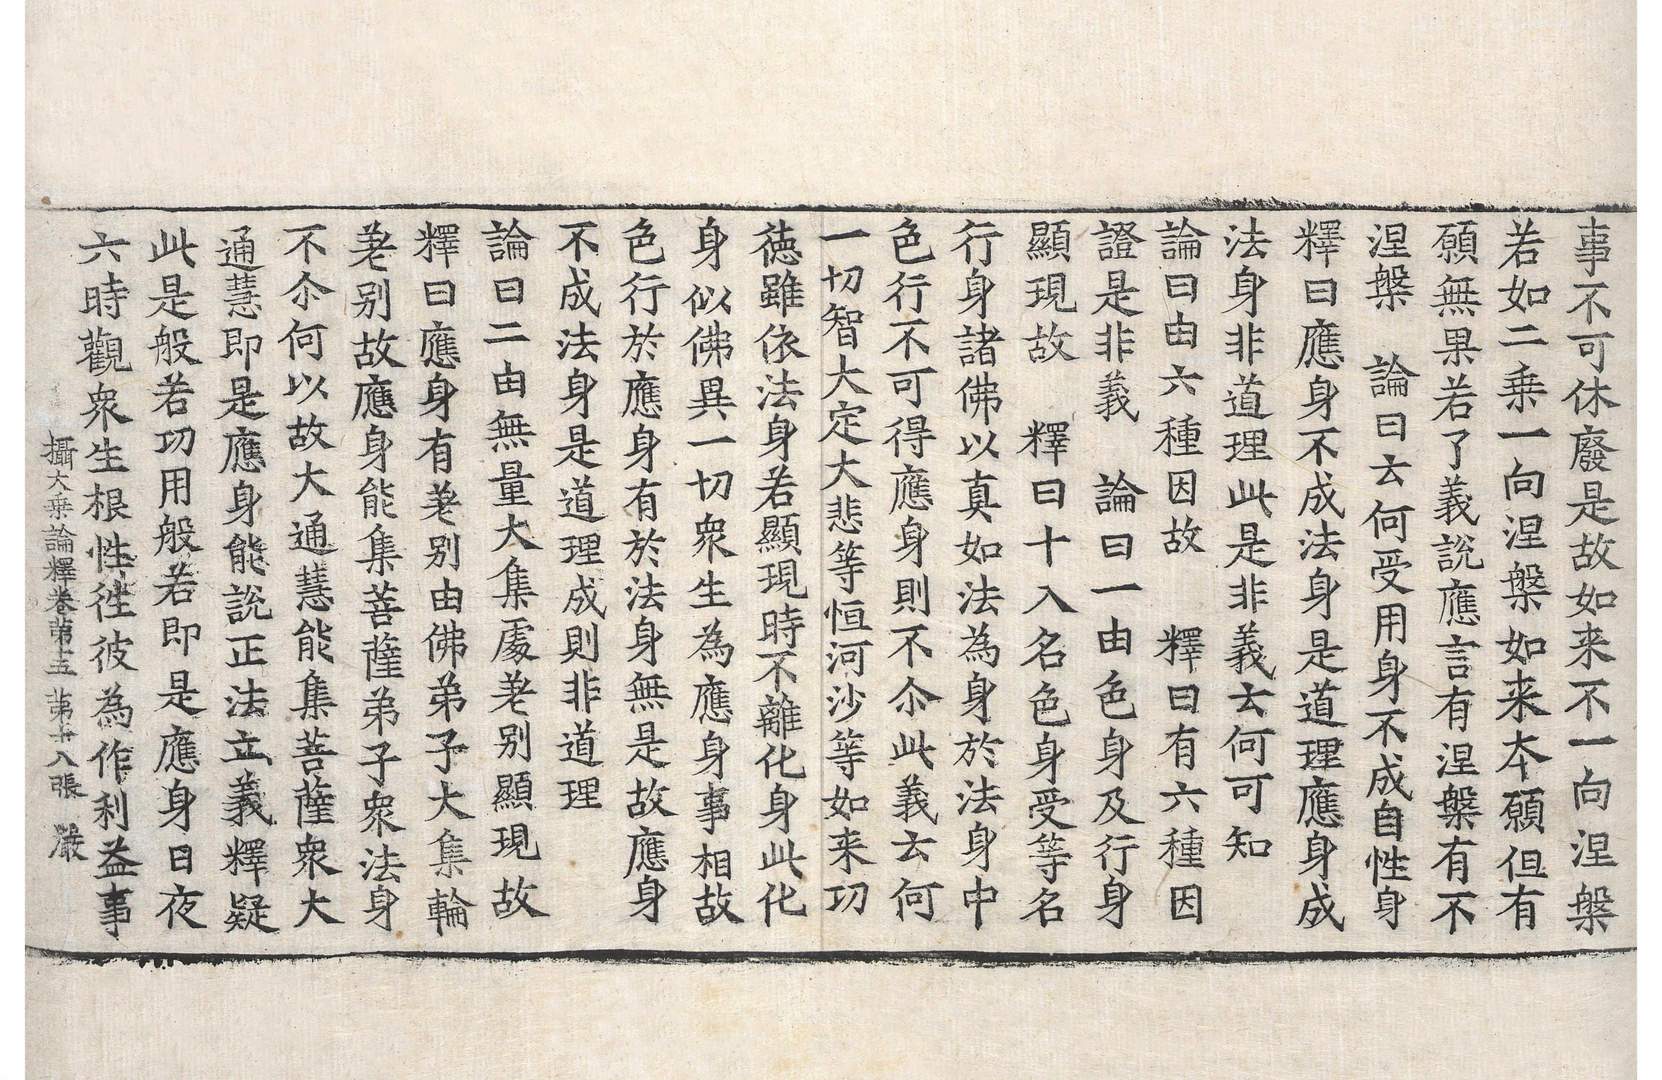 事不可休廢是故如来不一向涅槃
若如二乗一向涅槃如来夲願但有
願無果若了義説應言有涅槃有不
涅槃　論曰云何受用身不成自性身
釋曰應身不成法身是道理應身成
法身非道理此是非義云何可知
論曰由六種因故　釋曰有六種因
證是非義　論曰一由色身及行身
顯現故　釋曰十入名色身受等名
行身諸佛以真如法為身於法身中
色行不可得應身則不尒此義云何
一切智大定大悲等恒河沙等如来功
徳雖依法身若顯現時不離化身此化
身似佛異一切衆生為應身事相故
色行於應身有於法身無是故應身
不成法身是道理成則非道理
論曰二由無量大集處差别顯現故
釋曰應身有差别由佛弟子大集輪
差别故應身能集菩薩弟子衆法身
不尒何以故大通慧能集菩薩衆大
通慧即是應身能説正法立義釋疑
此是般若功用般若即是應身日夜
六時觀衆生根性徃彼為作利益事
攝大乗論釋卷第十五　第十八張　嚴